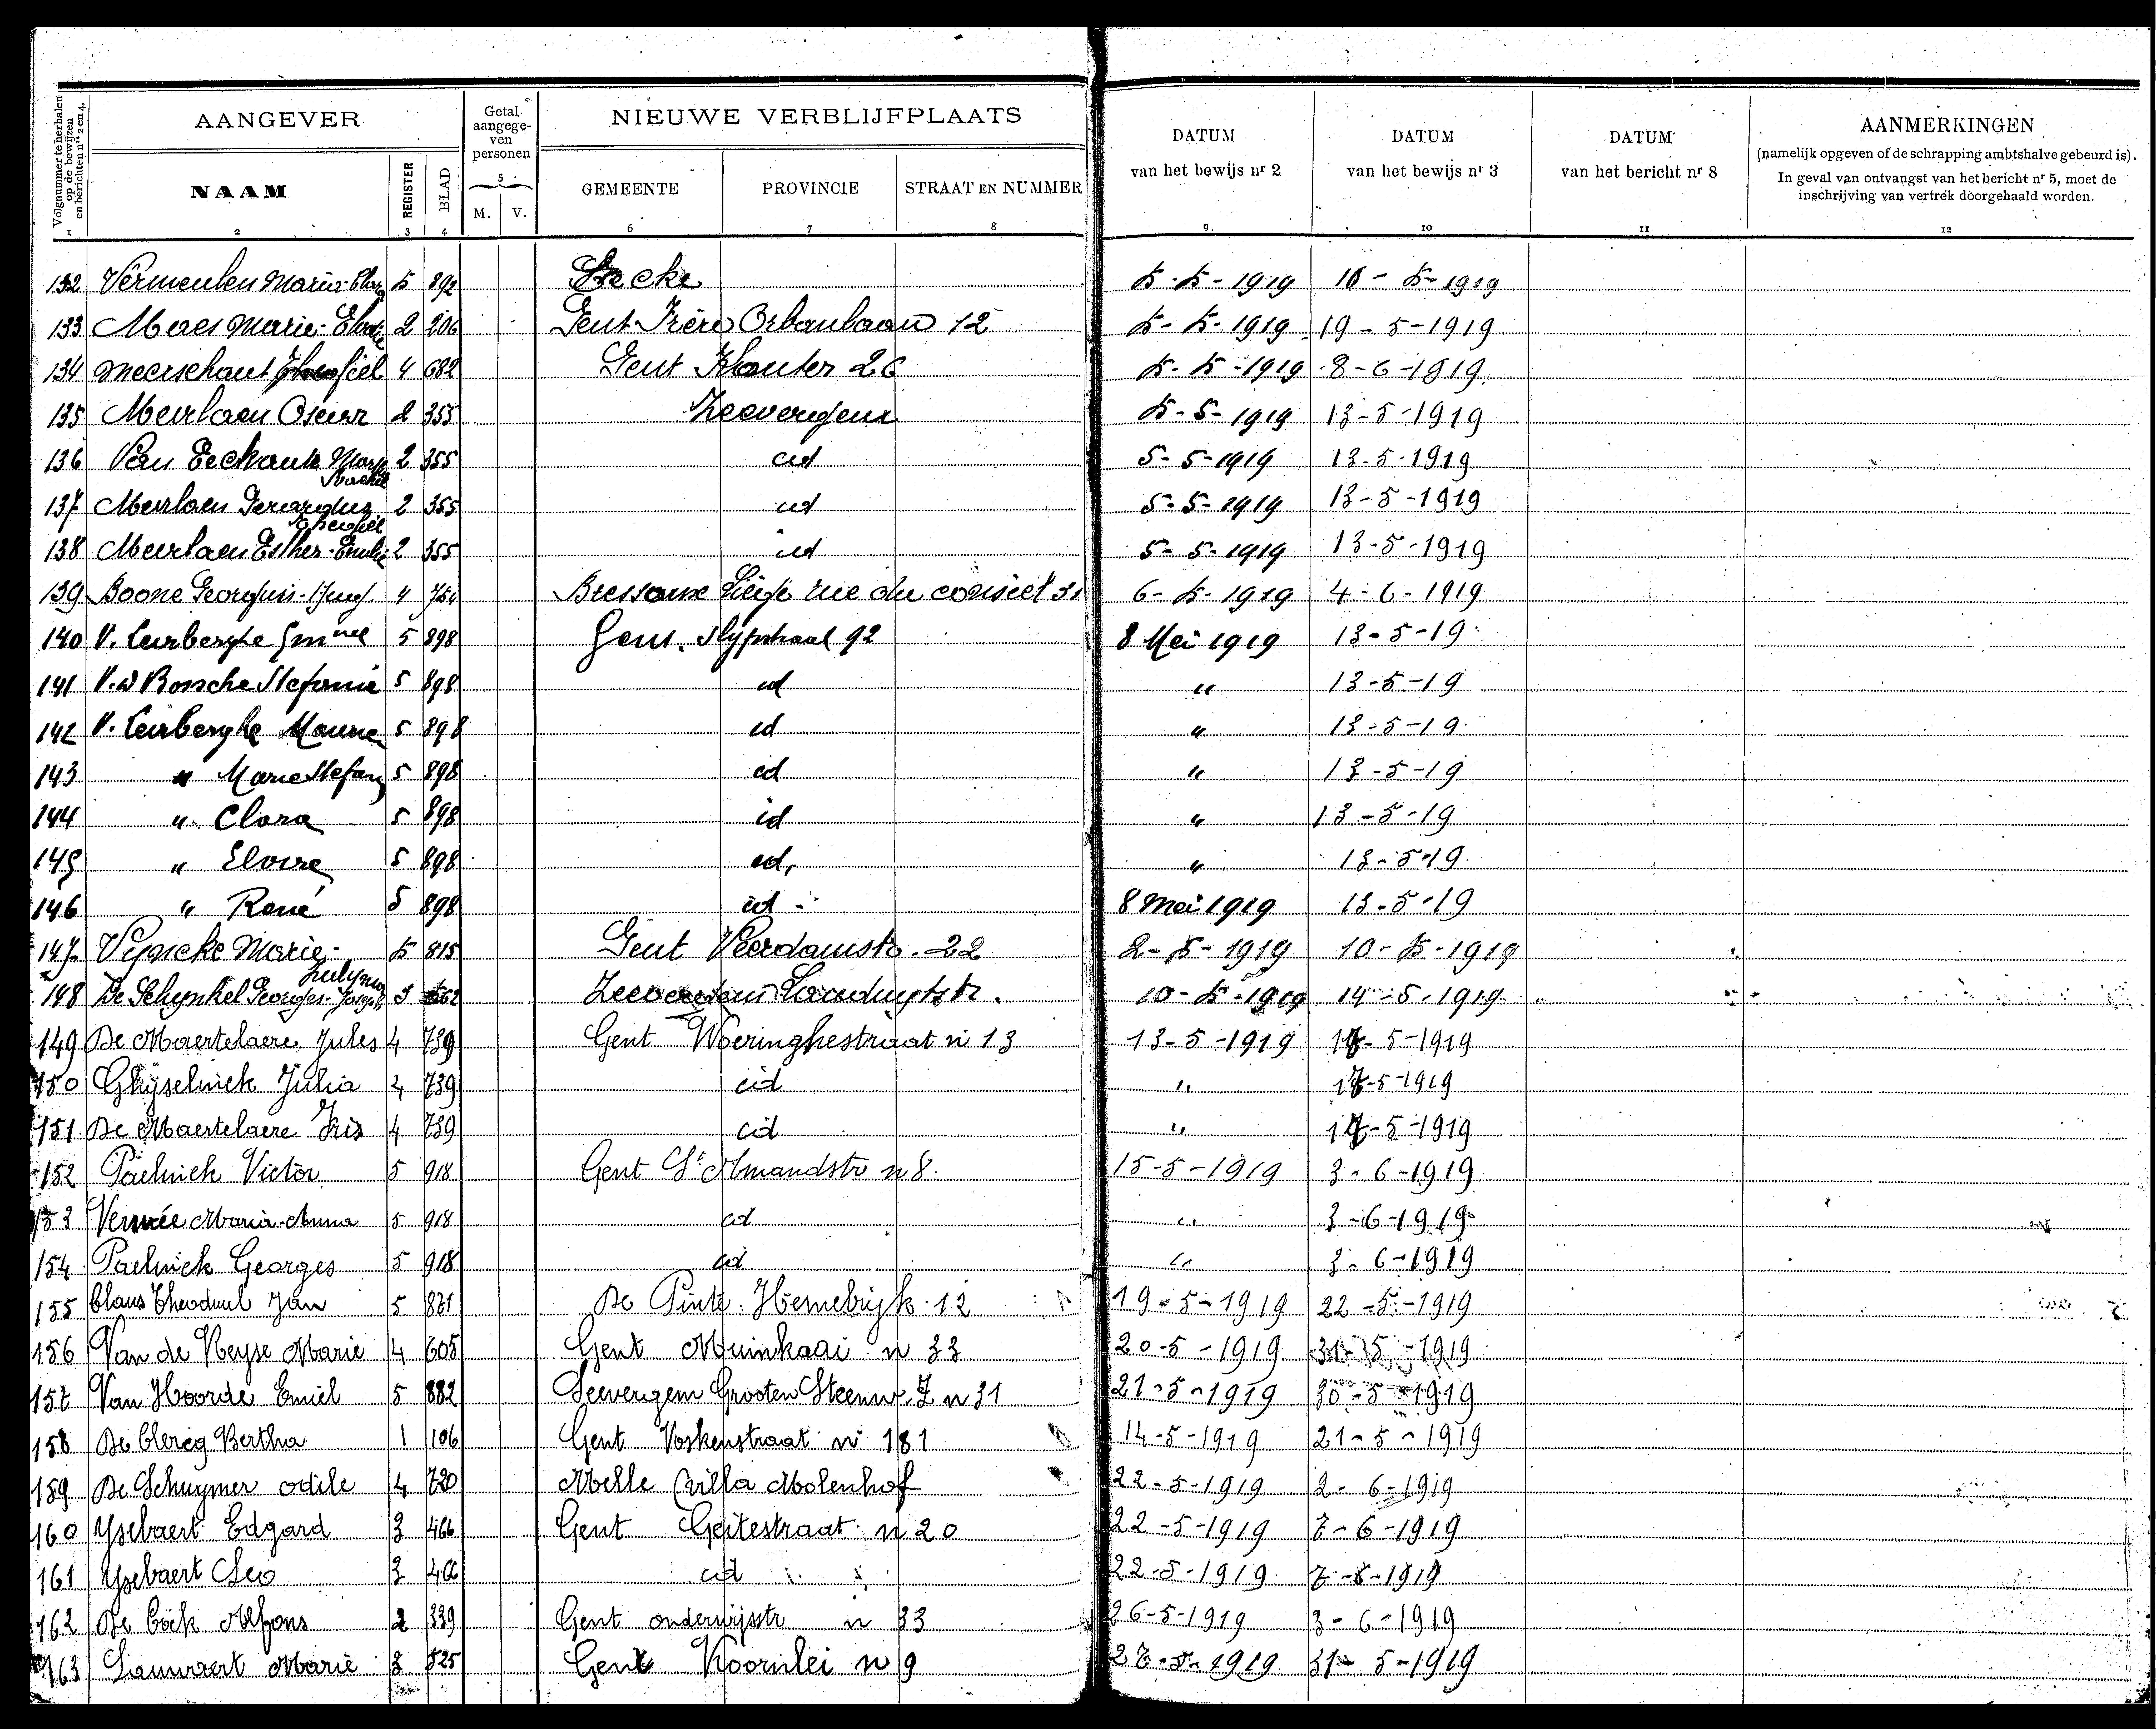 Volgnummer te herhalen op de bewijzen en berichten nrs 2 en 4.
AANGEVER
Getal aangege-ven personen
NIEUWE VERBLIJFPLAATS
DATUM van het bewijs nr 2
DATUM van het bewijs nr 3
DATUM van het bericht nr 8
AANMERKINGEN
(namelijk opgeven of de schrapping ambtshalve gebeurd is).
In geval van ontvangst van het bericht nr 5, moet de
inschrijving van vertrek doorgehaald worden.
NAAM REGISTER BLAD 5 M. V. GEMEENTE PROVINCIE STRAAT EN NUMMER
1 2 3 4 6 7 8 9 10 11 12
132 Vermeulen Maria 5 892 5-5-1919 10-5-1919
133 Maes Marie 2 206 Gent Frère Orbanlaan 12 5-5-1919 19-5-1919
134 Meerschaut 4 682 Gent Klauter 26 5-5-1919 8-6-1919
135 Meirlaen Oscar 2 355 Zeevergem 5-5-1919 13-5-1919
136 Van Eeckaute 2 355 id 5-5-1919 13-5-1919
137 Meirlaen Gerardus 2 355 id 5-5-1919 13-5-1919
138 Meirlaen Esther-Emilie 2 355 id 5-5-1919 13-5-1919
139 Boone 4 Bressoux Liége rue du conseil 31 6-5-1919 4-6-1919
140 V. Leirberghe 5 898 Gent. Slypstraat 92 8 Mei 1919 13-5-19
141 V.d Bossche Stefanie 5 898 id " 13-5-19
142 V. Leirberghe Maurice 5 898 id " 13-5-19
143 " Marie Stefany 5 898 id " 13-5-19
144 " Clara 5 898 id " 13-5-19
145 " Elvire 5 898 id, " 13-5-19
146 " René 5 898 id - 8 Mei 1919 13-5-19
147 Vyncke Marie- 5 815 Gent Veerdamstr. 22 2-5-1919 10-5-1919
148 De Schynkel Georges-Joseph 3 10-5-1919 14-5-1919
149 De Maertelaere Jules 4 739 Gent Woeringhestraat n 13 13-5-1919 17-5-1919
150 Ghyselinck Julia 4 739 id " 17-5-1919
151 De Maertelaere Iris 4 739 id " 17-5-1919
152 Paelinck Victor 5 918 Gent St Amandstr n 8. 15-5-1919 3-6-1919
153 Maria-Anna 5 918 id " 3-6-1919
154 Paelinck Georges 5 918 id " 3-6-1919
155 Claus Theoduul Jan 5 821 De Pinte 12 19-5-1919 22-5-1919
156 Van de Keyse Marie 4 605 Gent Muinkaai n 33 20-5-1919 31-5-1919
157 Van Hoorde Emiel 5 882 Seevergem Grooten Steenw. Z n 31 21-5-1919 30-5-1919
158 De Clercq Bertha 1 106 Gent Voskenstraat nr 181 14-5-1919 21-5-1919
159 De Schuymer Odile 4 720 Melle Villa Molenhof 22-5-1919 2-6-1919
160 Ysebaert Edgard 3 466 Gent Geitestraat n 20 22-5-1919 7-6-1919
161 Ysebaert Leo 3 466 id 22-5-1919 7-6-1919
162 De Cock Alfons 2 339 Gent onderwijsstr n 33 26-5-1919 3-6-1919
163 Lauwaert Marie 3 525 Gent Koornlei n 9 27-5-1919 31-5-1919